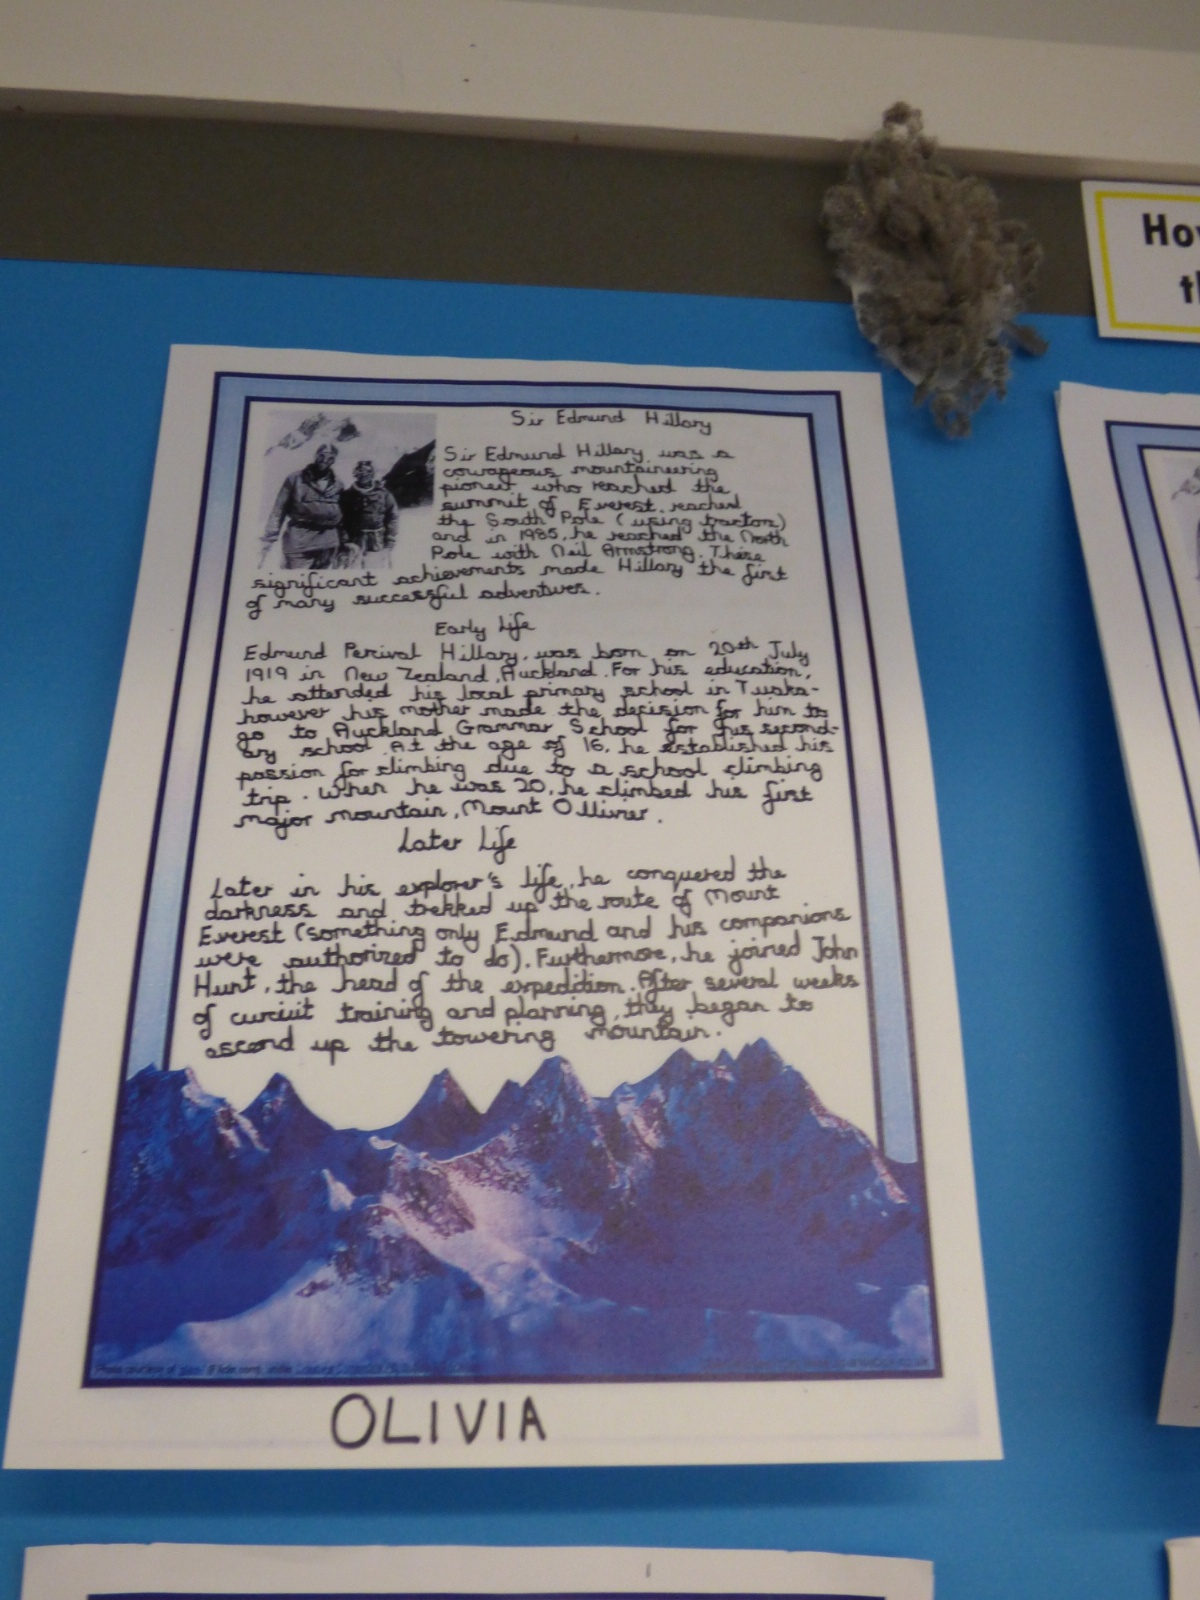 Sir Edmund Hillary
Sir Edmund Hillary was a
courageous mountaineering
pioneer who reached the
summit of Everest, reached
the South Pole (using tractors)
and in 1985, he reached the North
Pole with Neil Armstrong. These
significant achievements made Hillary the first
of many successful adventures.
Early Life
Edmund Percival Hillary, was born on 20th July
1919 in New Zealand, Auckland. For his education,
he attended his local primary school in Tuaka-
however his mother made the decision for him to
go to Auckland Grammar School for his second-
ary school. At the age of 16, he established his
passion for climbing due to a school climbing
trip. When he was 20, he climbed his first
major mountain, Mount Ollivier.
Later Life
Later in his explorer's life, he conquered the
darkness and trekked up the route of Mount
Everest (something only Edmund and his companions
were authorized to do). Furthermore, he joined John
Hunt, the head of the expedition. After several weeks
of curciut training and planning, they began to
ascend up the towering mountain.
OLIVIA